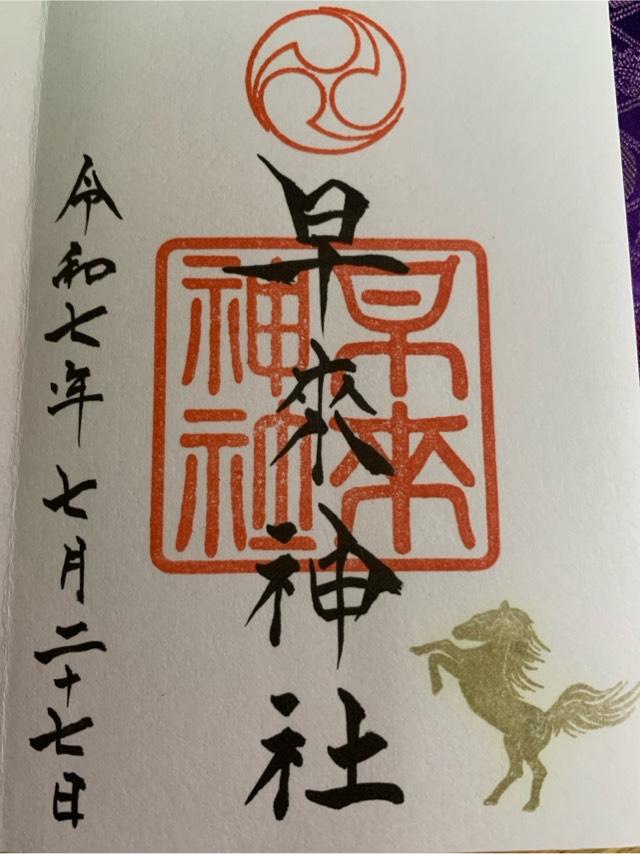 早來神社
早来神社
令和七年七月二十七日